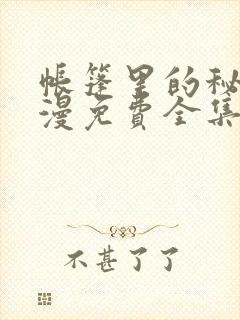 帐篷里的秘
漫免费全集
不甚了了